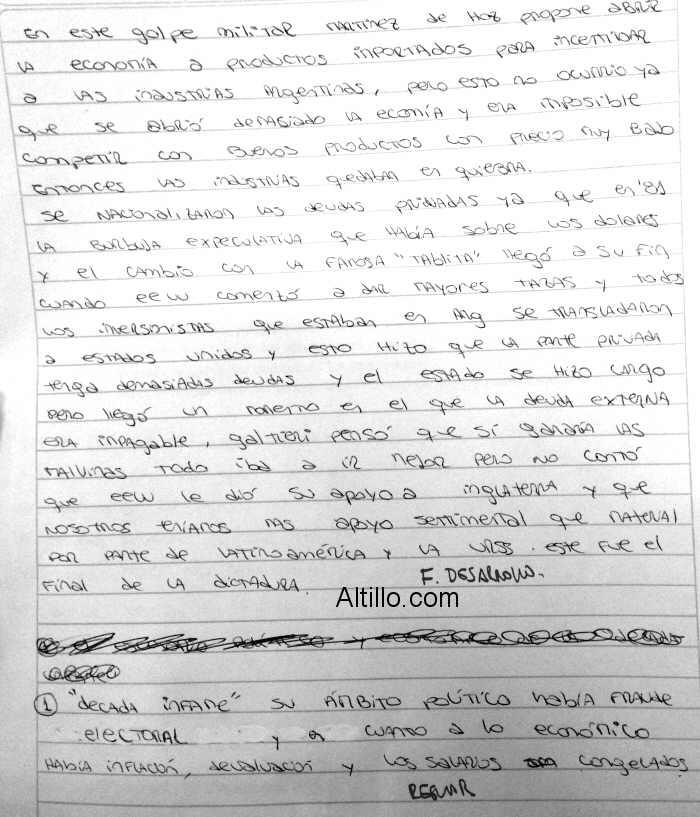 en este golpe militar martinez de Hoz propone abrir
la economía a productos importados para incentivar
a las industrias Argentinas, pero esto no ocurrio ya
que se abrió demasiado la econía y era imposible
competir con buenos productos con precio muy bajo
entonces las industrias quedaban en quiebra.
se nacionalizaron las deudas privadas ya que en '81
la burbuja expeculativa que había sobre los dolares
y el cambio con la famosa "tablita" llegó a su fin
cuando eeuu comentó a dar mayores tazas y todos
los inversionistas que estaban en Arg se transladaron
a estados unidos y esto hizo que la parte privada
tenga demasiadas deudas y el estado se hizo cargo
pero llegó un momento en el que la deuda externa
era impagable, galtieri pensó que si ganaba las
malvinas todo iba a ir mejor pero no contó
que eeuu le dió su apoyo a inglaterra y que
nosotros teníamos mas apoyo sentimental que material
por parte de latinoamérica y la URSS. este fue el
final de la dictadura. F. Desarrollo.
Altillo.com
① "decada infame" su ámbito político había fraude
electoral y en cuanto a lo económico
había inflación, devaluación y los salarios congelados